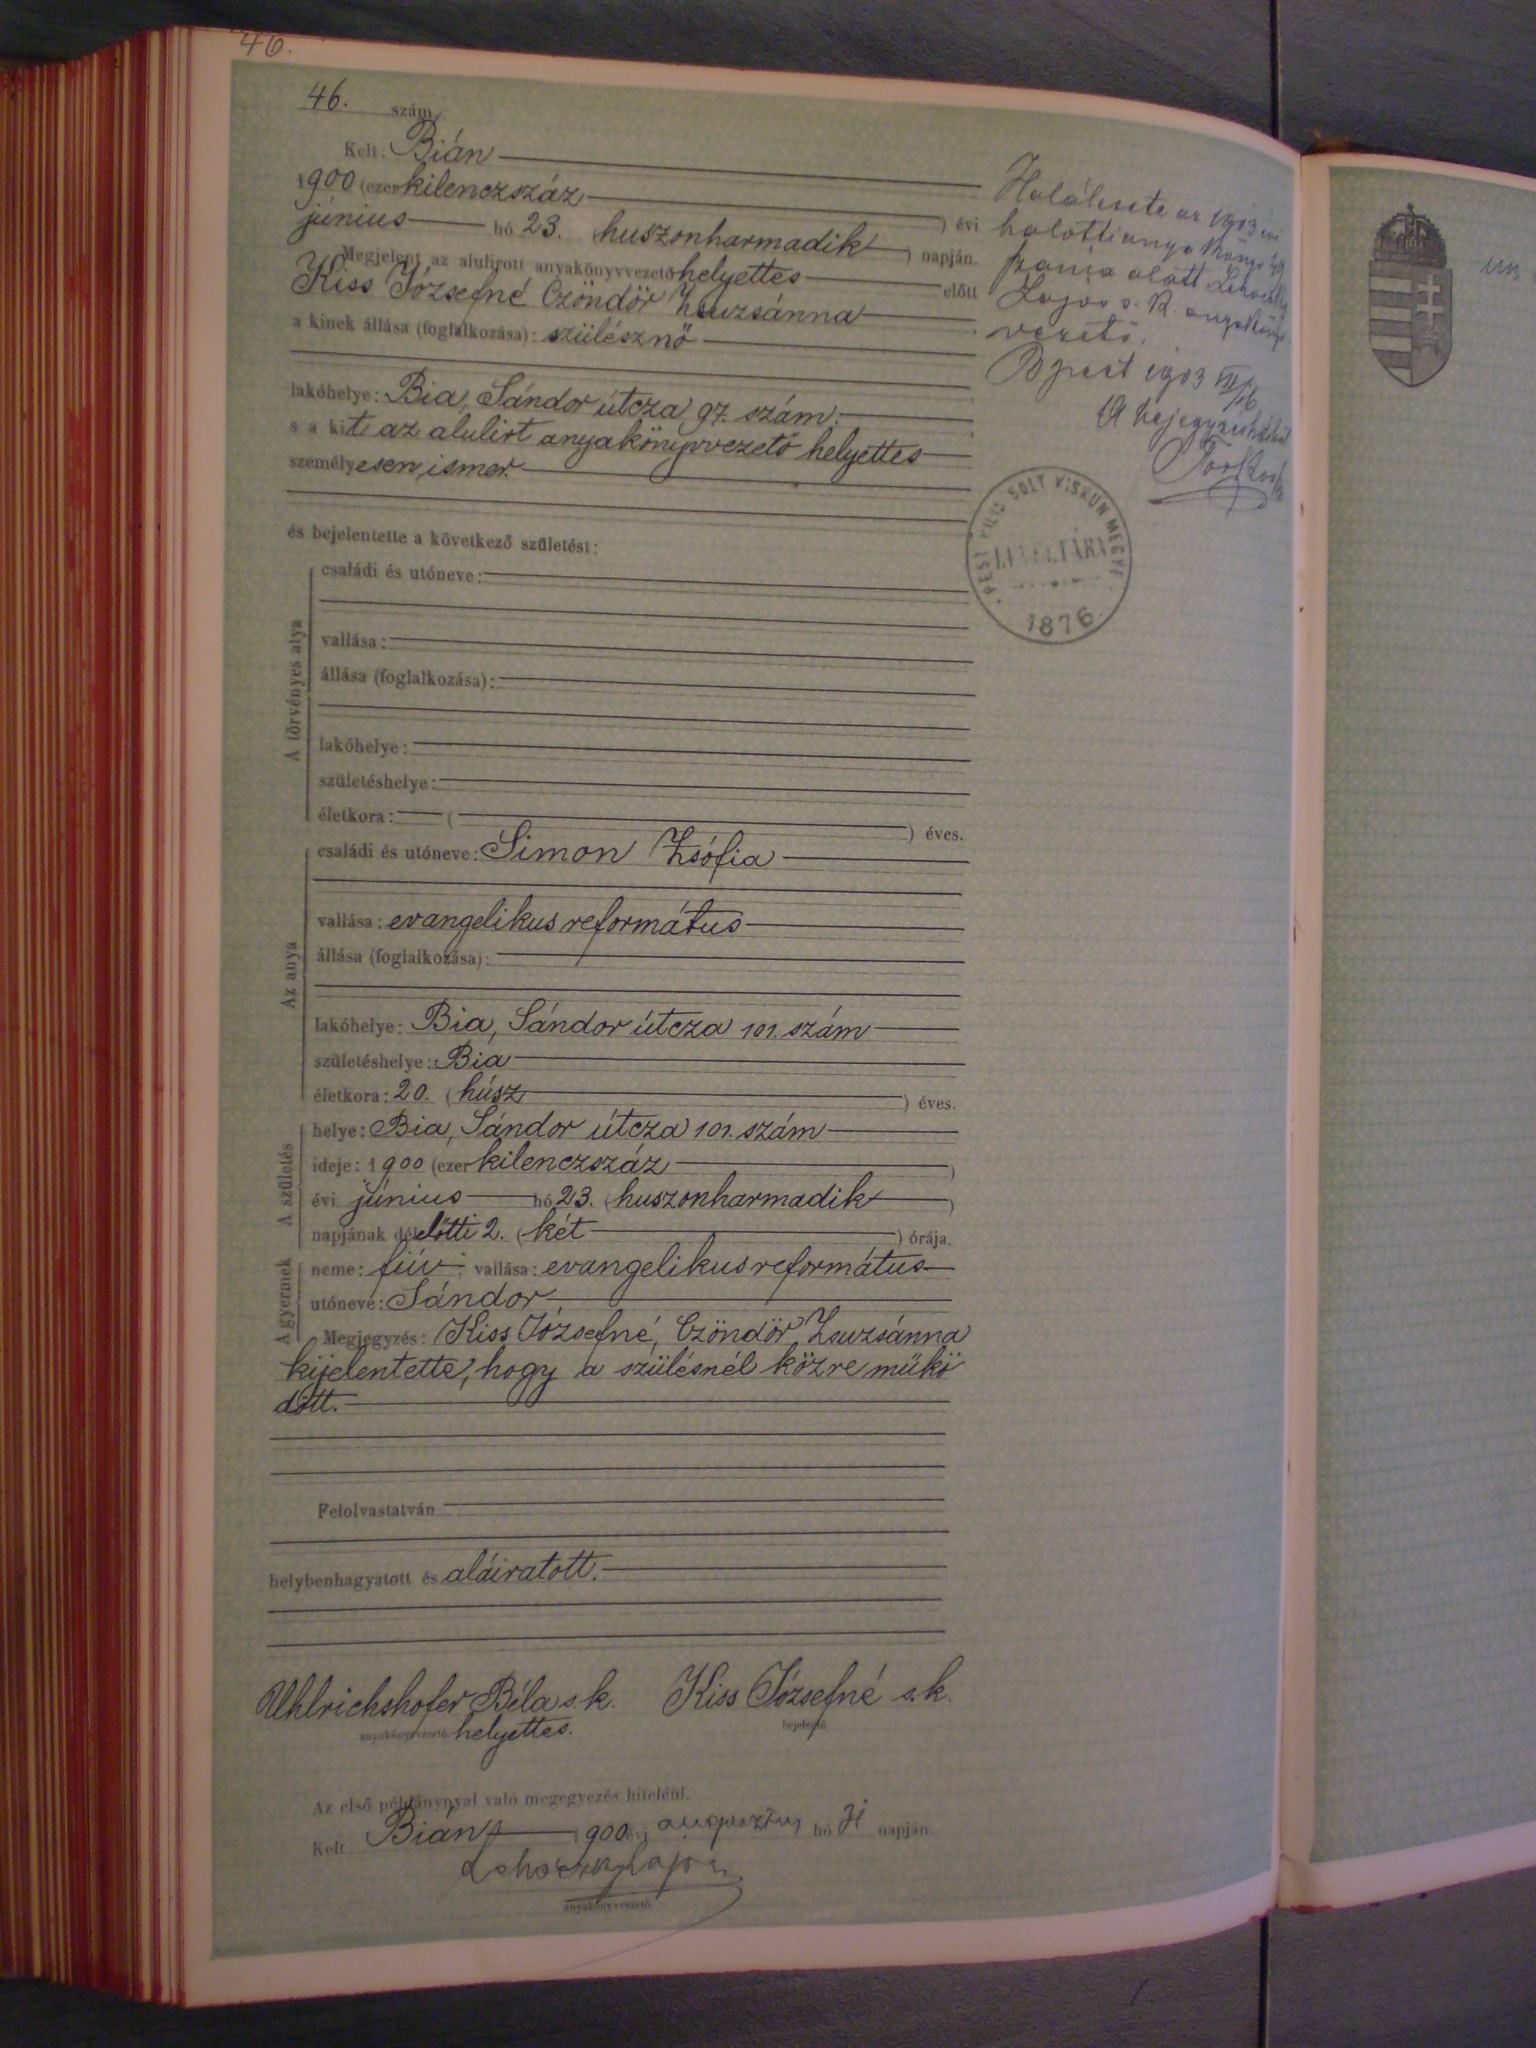 46.
46. szám
Kelt: Bián
1900 (ezer kilenczszáz ) évi
június hó 23. (huszonharmadik) napján.
Megjelent az alulirott anyakönyvvezető helyettes előtt
Kiss Józsefné Czöndör Zsuzsánna
a kinek állása (foglalkozása): szülésznő
lakóhelye: Bia, Sándor útcza 97. szám.
s a kit az alulirt anyakönyvvezető helyettes
személyesen ismer.
és bejelentette a következő születést:
A törvényes atya
családi és utóneve:
vallása:
állása (foglalkozása):
lakóhelye:
születéshelye:
életkora: ( ) éves.
Az anya
családi és utóneve: Simon Zsófia
vallása: evangelikus református
állása (foglalkozása):
lakóhelye: Bia, Sándor útcza 101. szám
születéshelye: Bia
életkora: 20. (húsz ) éves.
A születés
helye: Bia, Sándor útcza 101. szám
ideje: 1900 (ezer kilenczszáz )
évi június hó 23. (huszonharmadik )
napjának délelőtti 2. (két ) órája.
A gyermek
neme: fiú; vallása: evangelikus református
utóneve: Sándor
Megjegyzés: Kiss Józsefné, Czöndör Zsuzsánna
kijelentette, hogy a szülésnél közre műkö
dött.
Felolvastatván
helybenhagyatott és aláiratott.
Uhlrichshofer Béla s.k. Kiss Józsefné s.k.
anyakönyvvezető helyettes. bejelentő.
Az első példánynyal való megegyezés hiteléül.
Kelt Bián 1900 évi augusztus hó 31 napján.
Lehoczky Lajos
anyakönyvvezető.
Halálesete az 1903 évi
halotti anyakönyv 49
száma alatt Lehoczky
Lajos s. k. anyakönyv
vezető.
Bpest 1903 VII/16
PEST PILIS SOLT KISKUN MEGYE
LEVÉLTÁRA
1876